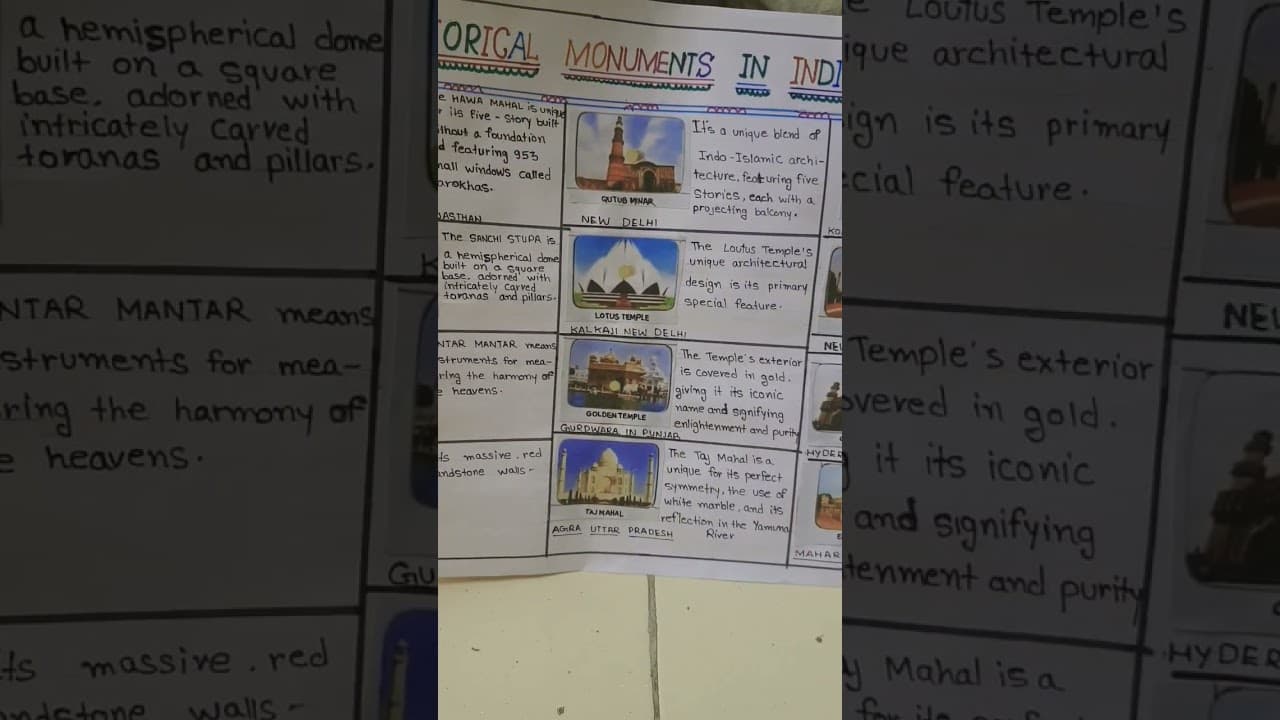 ORICAL MONUMENTS IN INDI
HAWA MAHAL is unique
its Five - Story built
without a foundation
featuring 953
small windows called
Jarokhas.
The SANCHI STUPA is
a hemispherical dome
built on a square
base. adorned with
intricately carved
toranas and pillars.
NTAR MANTAR means
struments for mea-
ring the harmony of
heavens.
ts massive . red
andstone walls -
QUTUB MINAR
NEW DELHI
It's a unique blend of
Indo-Islamic archi-
tecture, featuring five
Stories, each with a
projecting balcony.
LOTUS TEMPLE
KALKAJI NEW DELHI
The Loutus Temple's
unique architectural
design is its primary
special feature.
GOLDEN TEMPLE
GURDWARA IN PUNJAB
The Temple's exterior
is covered in gold.
giving it its iconic
name and signifying
enlightenment and purity
TAJ MAHAL
AGRA UTTAR PRADESH
The Taj Mahal is a
unique for its perfect
symmetry, the use of
white marble, and its
reflection in the Yamuna
River
HYDER
MAHAR
a hemispherical dome
built on a square
base. adorned with
intricately carved
toranas and pillars.
NTAR MANTAR means
struments for mea-
ring the harmony of
heavens.
ts massive . red
andstone walls -
GU
Loutus Temple's
ique architectural
ign is its primary
cial feature.
Temple's exterior
overed in gold.
it its iconic
and signifying
tenment and purity
HYDER
Mahal is a